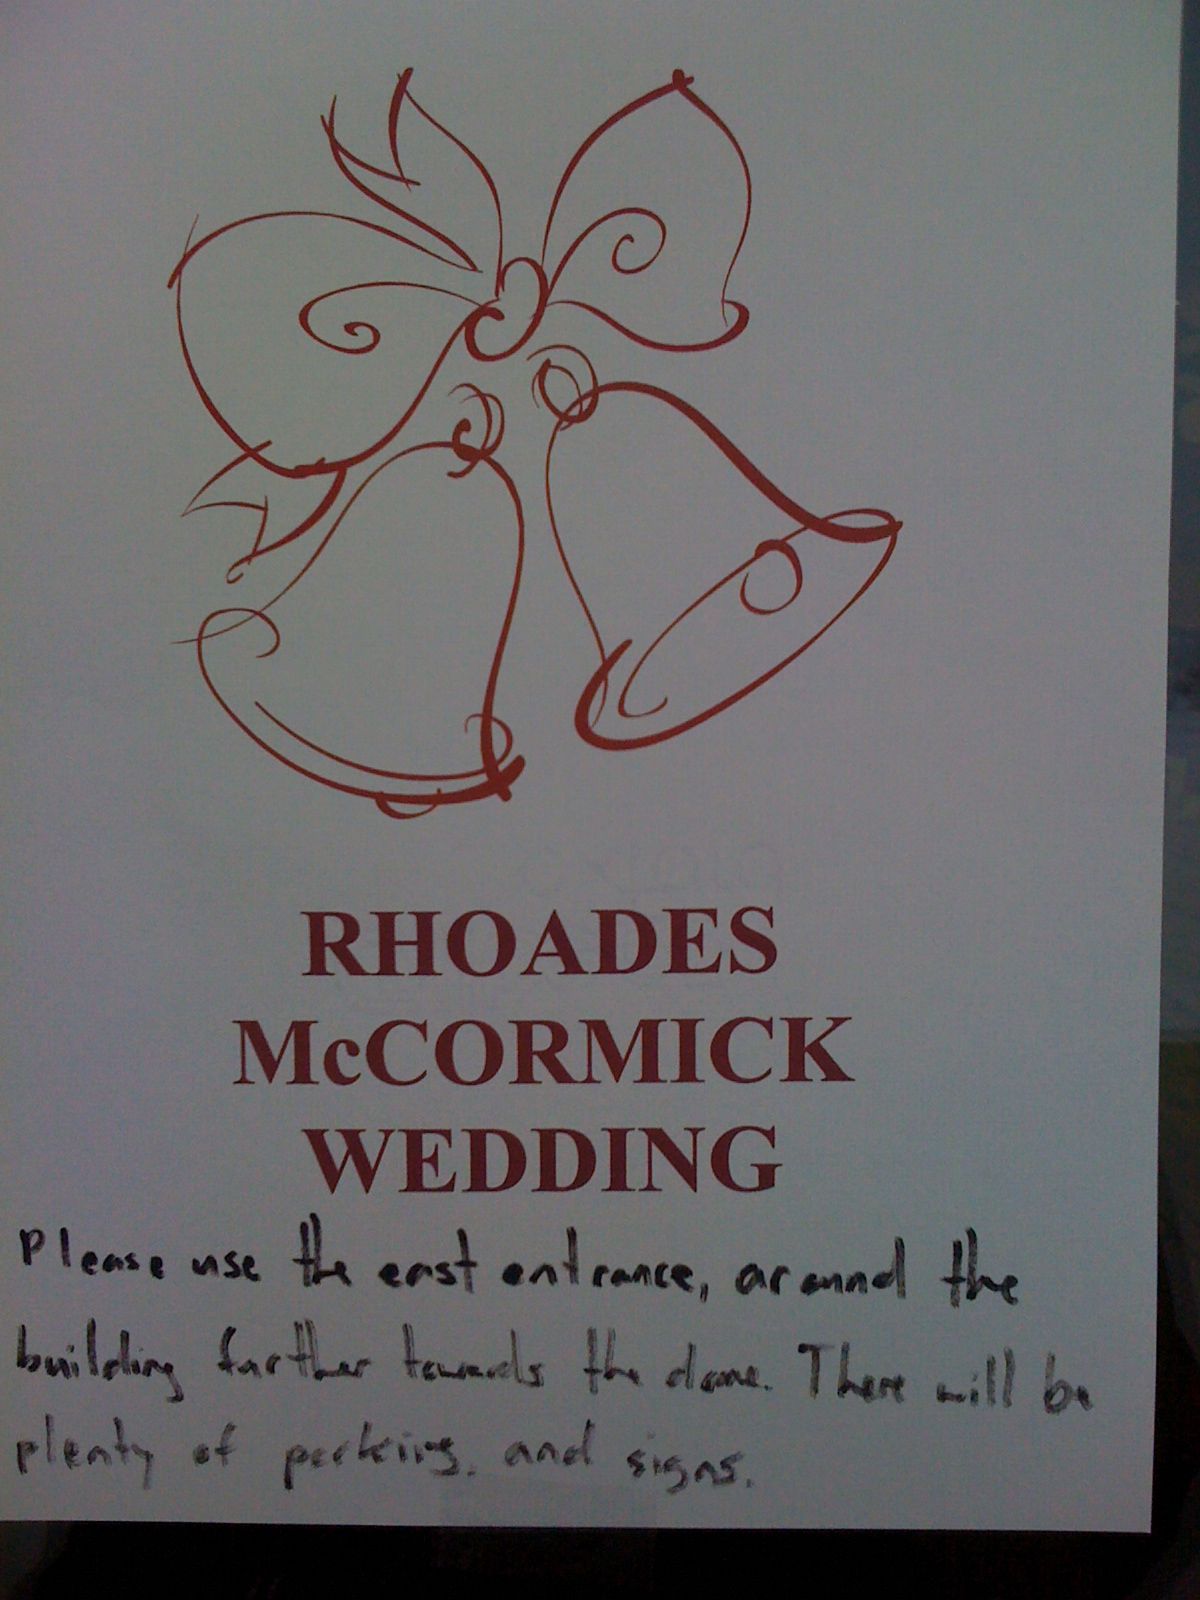 RHOADES
McCORMICK
WEDDING
Please use the east entrance, around the
building further towards the dome. There will be
plenty of parking, and signs.